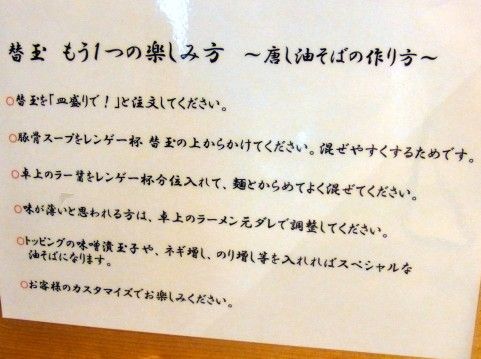 替玉 もう1つの楽しみ方 ～唐し油そばの作り方～
○替玉を「皿盛りで！」と注文してください。
○豚骨スープをレンゲ一杯 替玉の上からかけてください。混ぜやすくするためです。
○卓上のラー醤をレンゲ一杯分位入れて、麺とからめてよく混ぜてください。
○味が薄いと思われる方は、卓上のラーメン元ダレで調整してください。
○トッピングの味噌漬玉子や、ネギ増し、のり増し等を入れればスペシャルな
油そばになります。
○お客様のカスタマイズでお楽しみください。